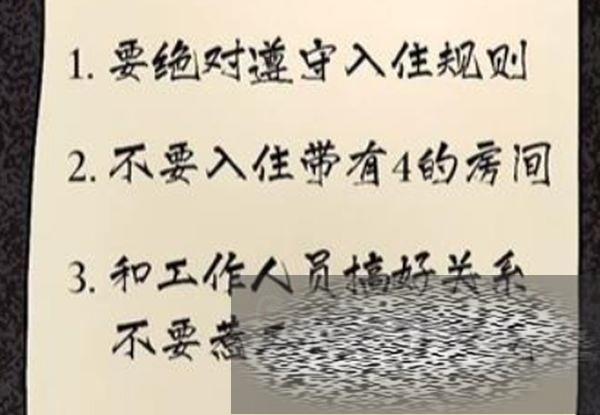 1. 要绝对遵守入住规则
2. 不要入住带有4的房间
3. 和工作人员搞好关系
不要惹